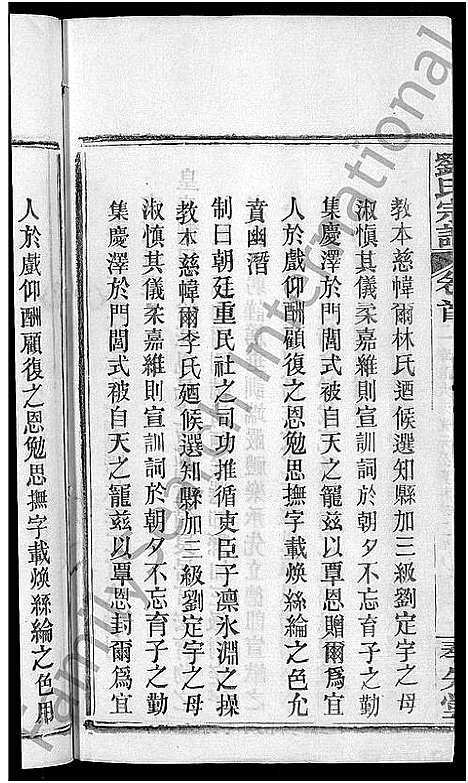 劉氏宗譜
卷首
教本慈幃爾林氏廼候選知縣加三級劉定宇之母
淑慎其儀柔嘉維則宣訓詞於朝夕不忘育子之勤
集慶澤於門閭式被自天之寵玆以覃恩贈爾爲宜
人於戲仰酬顧復之恩勉思撫字載煥絲綸之色允
賁幽潛
制曰朝廷重民社之司功推循吏臣子凛氷淵之操
教本慈幃爾李氏廼候選知縣加三級劉定宇之母
淑慎其儀柔嘉維則宣訓詞於朝夕不忘育子之勤
集慶澤於門閭式被自天之寵玆以覃恩封爾爲宜
人於戲仰酬顧復之恩勉思撫字載煥絲綸之色用
FamilySearch International